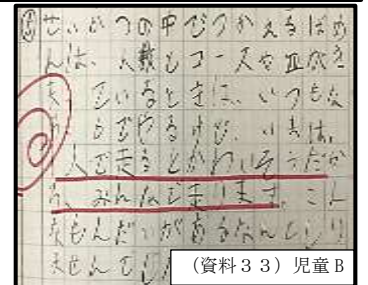 せいかつの中でつかえるばめ
んは、人数とコースを
ているときに、いつもな
やるけど、
人で走るとかわいそうだか
ら、みんなで走ります。こん
なもんだいがあるなんてしり
ませんでし
（資料３３）児童B